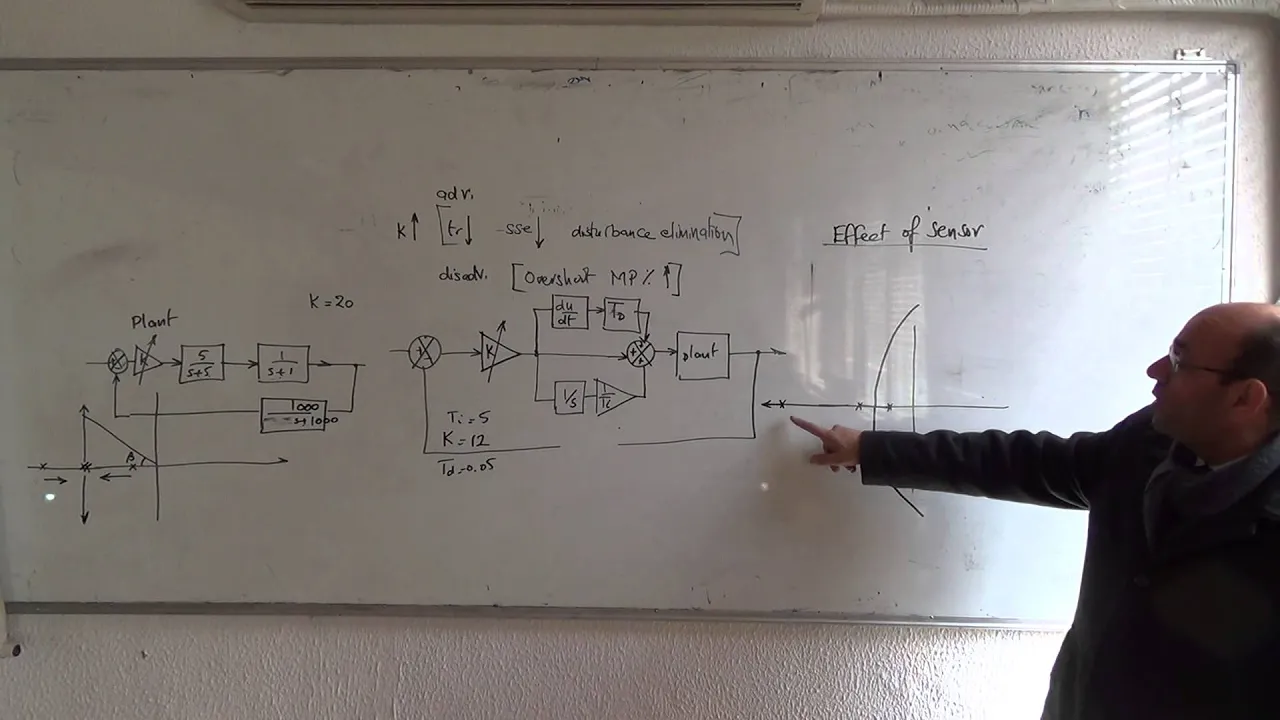 adv.
K↑ [tr↓ -sse↓ disturbance elimination]
disadv. [Overshoot MP% ↑]
Effect of sensor
K=20
Plant
K
5
s+5
1
s+1
1000
s+1000
β
K
du
dt
TD
plant
1/s
1
Ti
Ti=5
K=12
Td=0.05